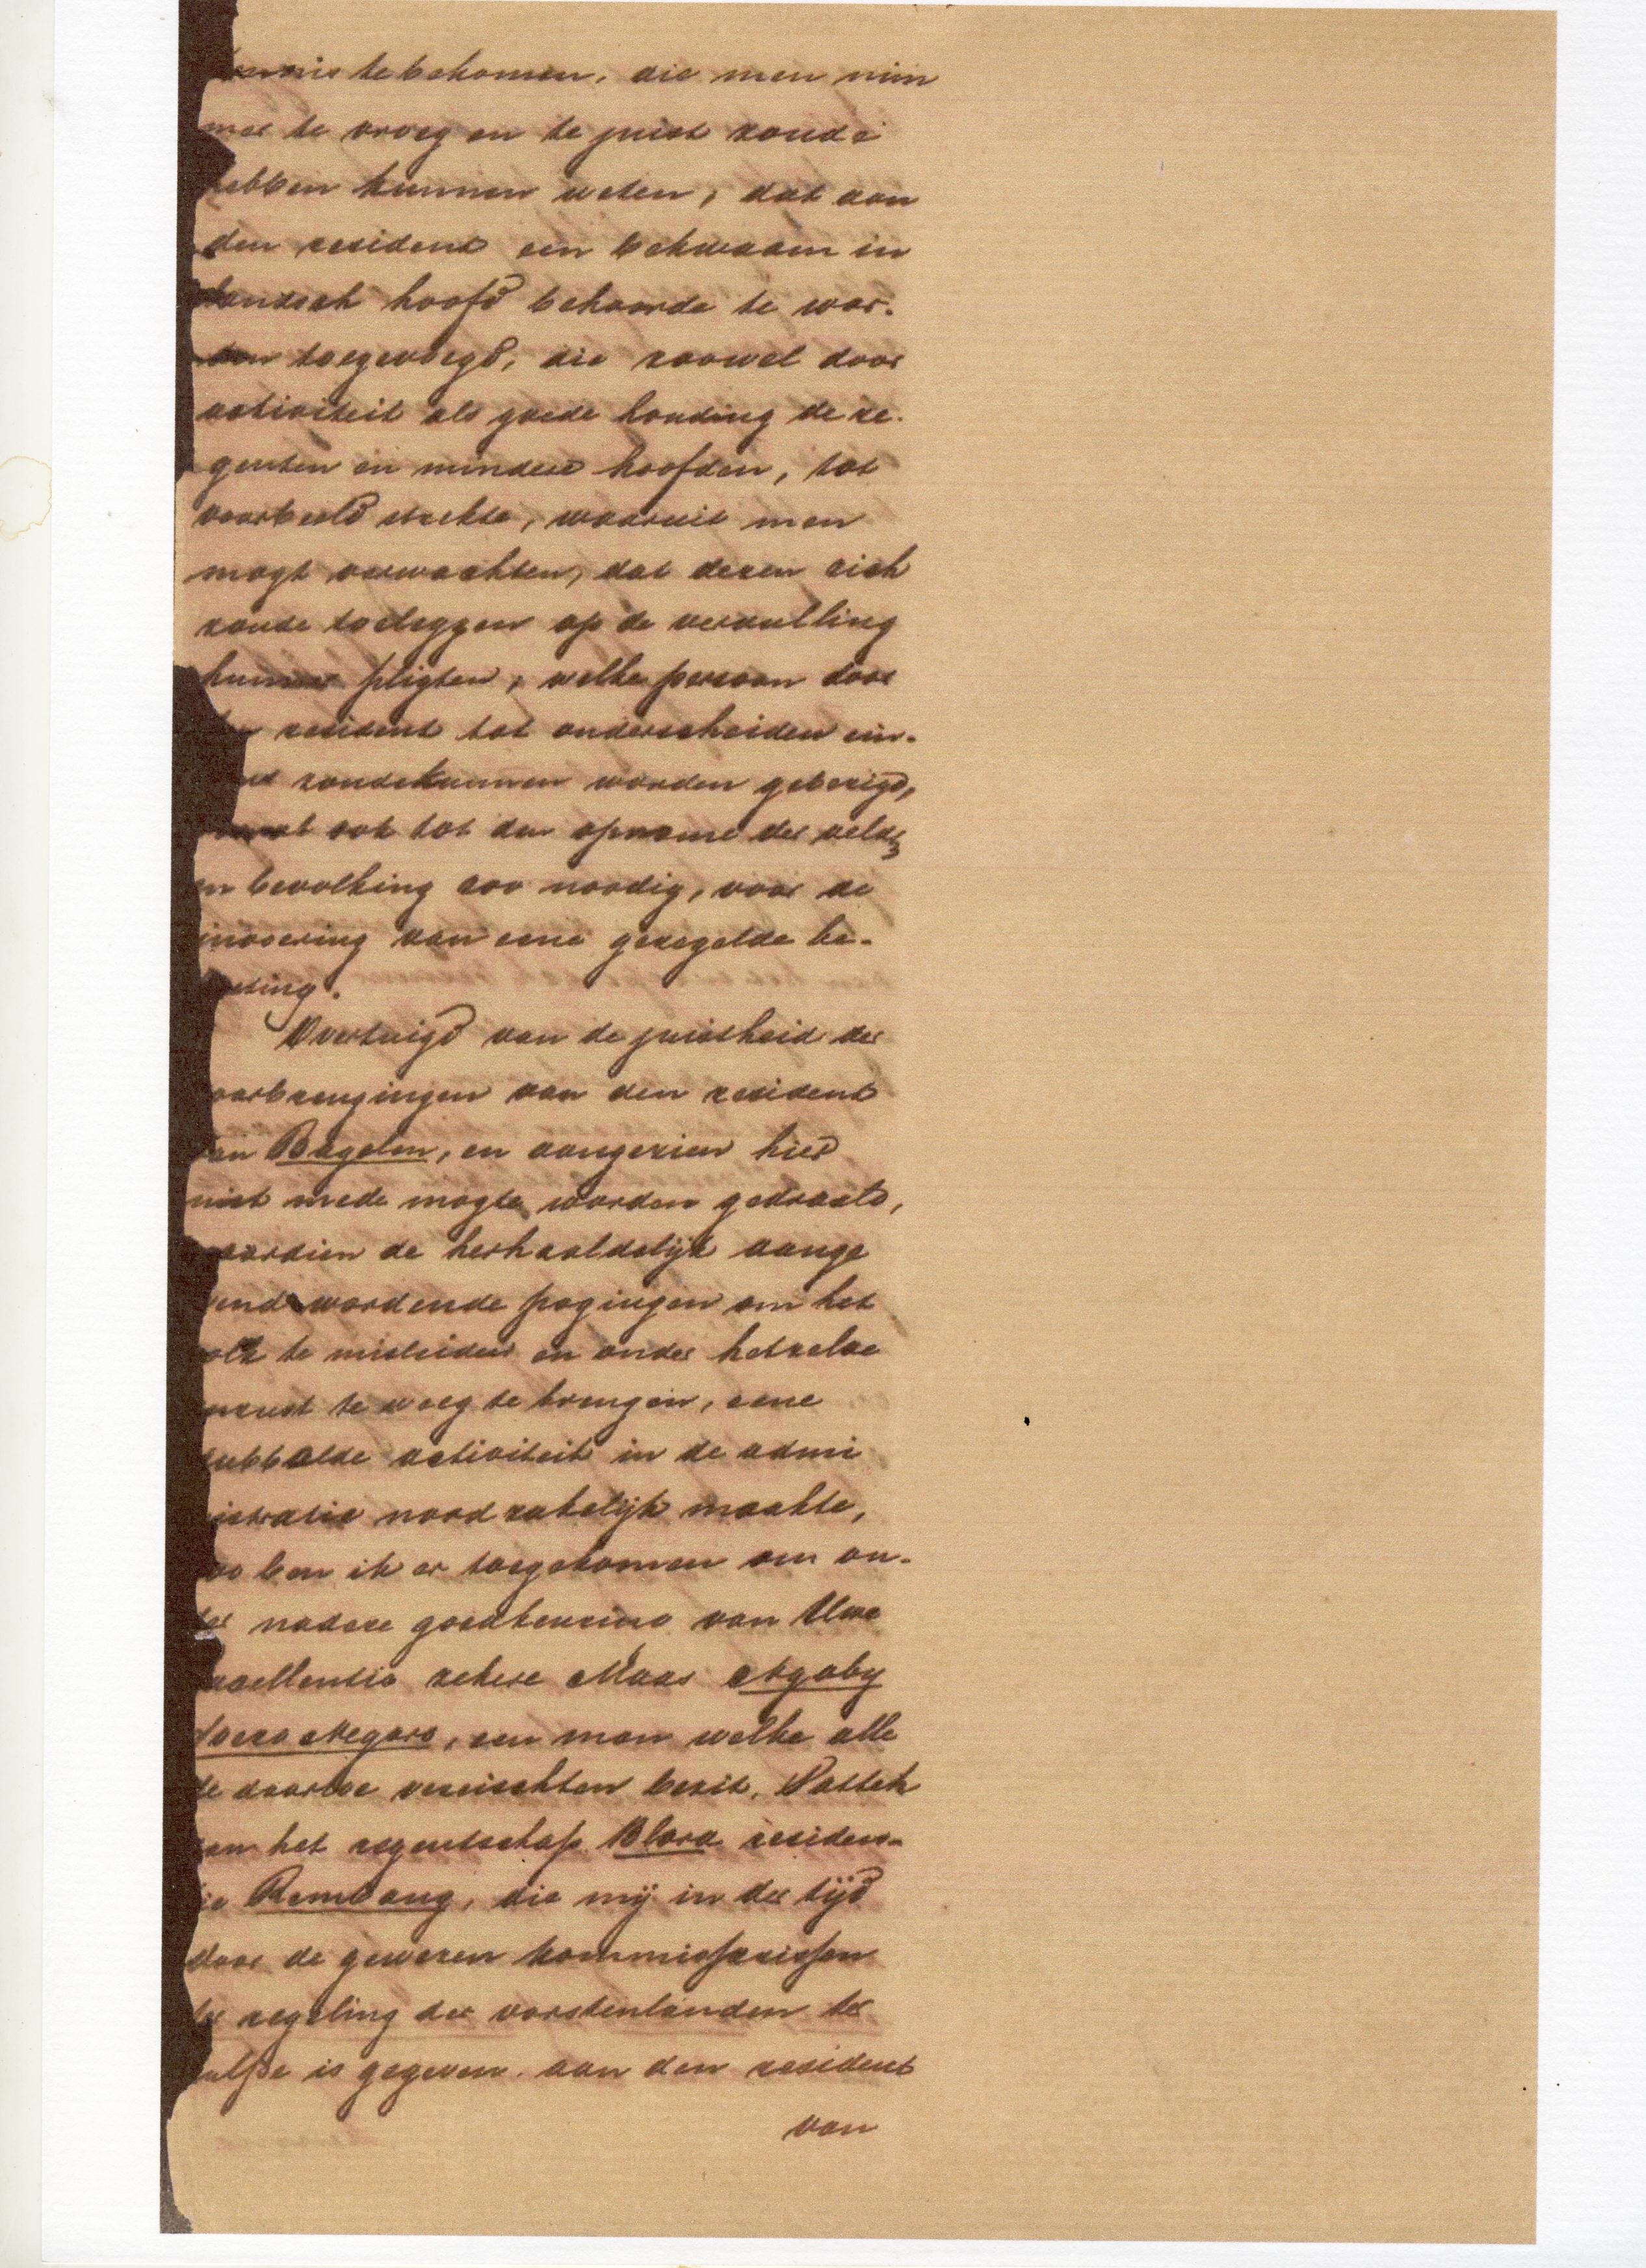 kennis te bekomen, die men nim
mer te vroeg en te juist zoude
hebben kunnen weten, dat aan
den resident een bekwaam in
landsch hoofd behoorde te wor-
den toegevoegd, die zoowel door
activiteit als goede houding de re-
genten en mindere hoofden, tot
voorbeeld strekte, waaruit men
mogt verwachten, dat dezen zich
zoude toeleggen op de vervulling
hunner pligten, welke persoon door
den resident tot onderscheiden ein-
zoude kunnen worden gebezigd,
ook tot den opname der velden
en bevolking zoo noodig, voor de
invoering van eene geregelde be-
lasting.
Overtuigd van de juistheid der
voorbrengingen van den resident
van Bagelen, en aangezien hier
niet mede mogte worden gedraald,
naardien de herhaaldelijk aange
wend wordende pogingen om het
volk te misleiden en onder hetzelve
onrust te weeg te brengen, eene
dubbelde activiteit in de admi
nistratie noodzakelijk maakte,
zoo ben ik er toegekomen om on-
der nadere goedkeuring van Uwe
Excellentie zekere Maas Ngabey
Negoro, een man welke alle
de daartoe vereischten bezit, Patteh
van het regentschap Blora residen-
tie Rembang, die mij in der tijd
door de gewezen kommissarissen
ter regeling der vorstenlanden ter
hulpe is gegeven aan den resident
van